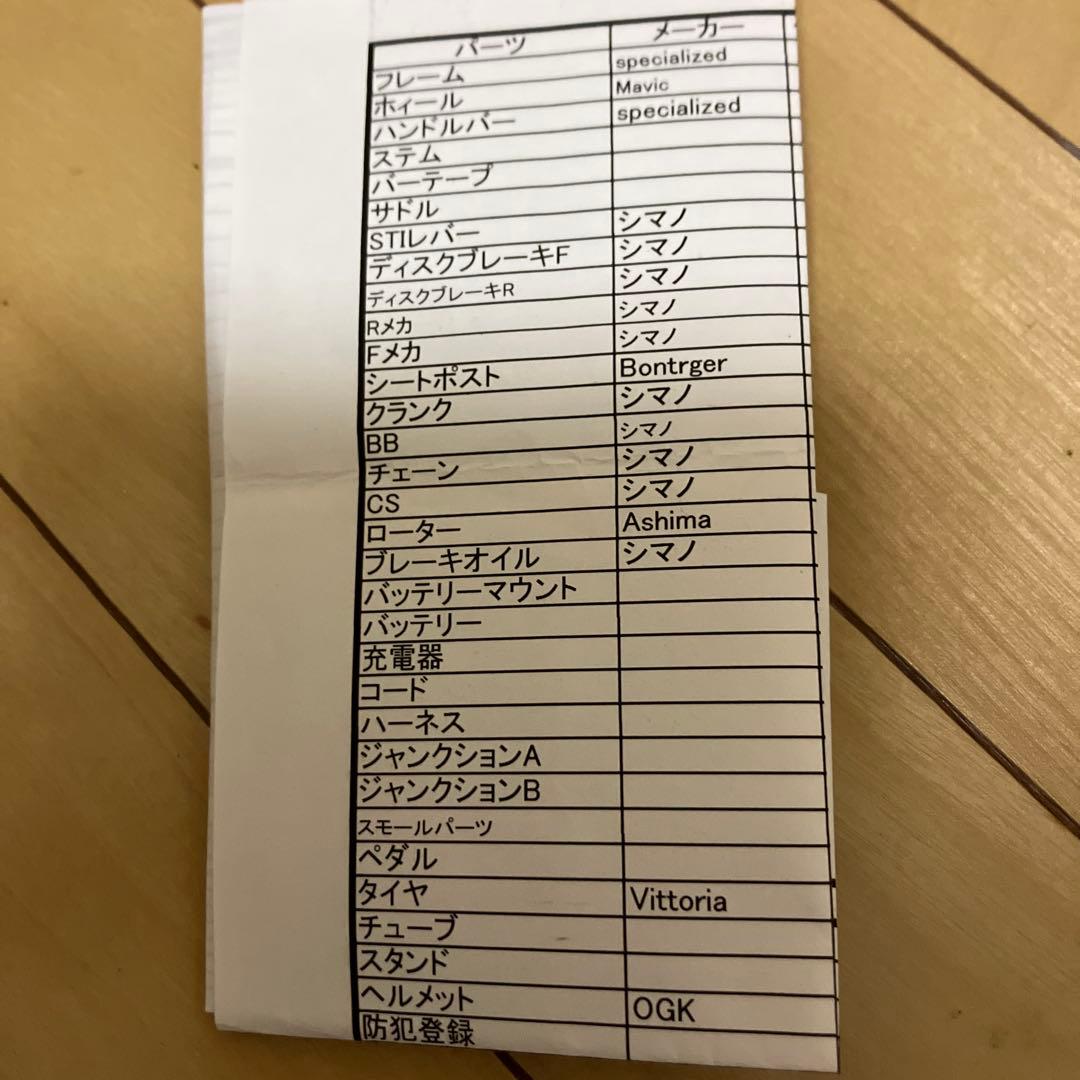 パーツ メーカー
フレーム specialized
ホィール Mavic
ハンドルバー specialized
ステム
バーテープ
サドル
STIレバー シマノ
ディスクブレーキF シマノ
ディスクブレーキR シマノ
Rメカ シマノ
Fメカ シマノ
シートポスト Bontrger
クランク シマノ
BB シマノ
チェーン シマノ
CS シマノ
ローター Ashima
ブレーキオイル シマノ
バッテリーマウント
バッテリー
充電器
コード
ハーネス
ジャンクションA
ジャンクションB
スモールパーツ
ペダル
タイヤ Vittoria
チューブ
スタンド
ヘルメット OGK
防犯登録